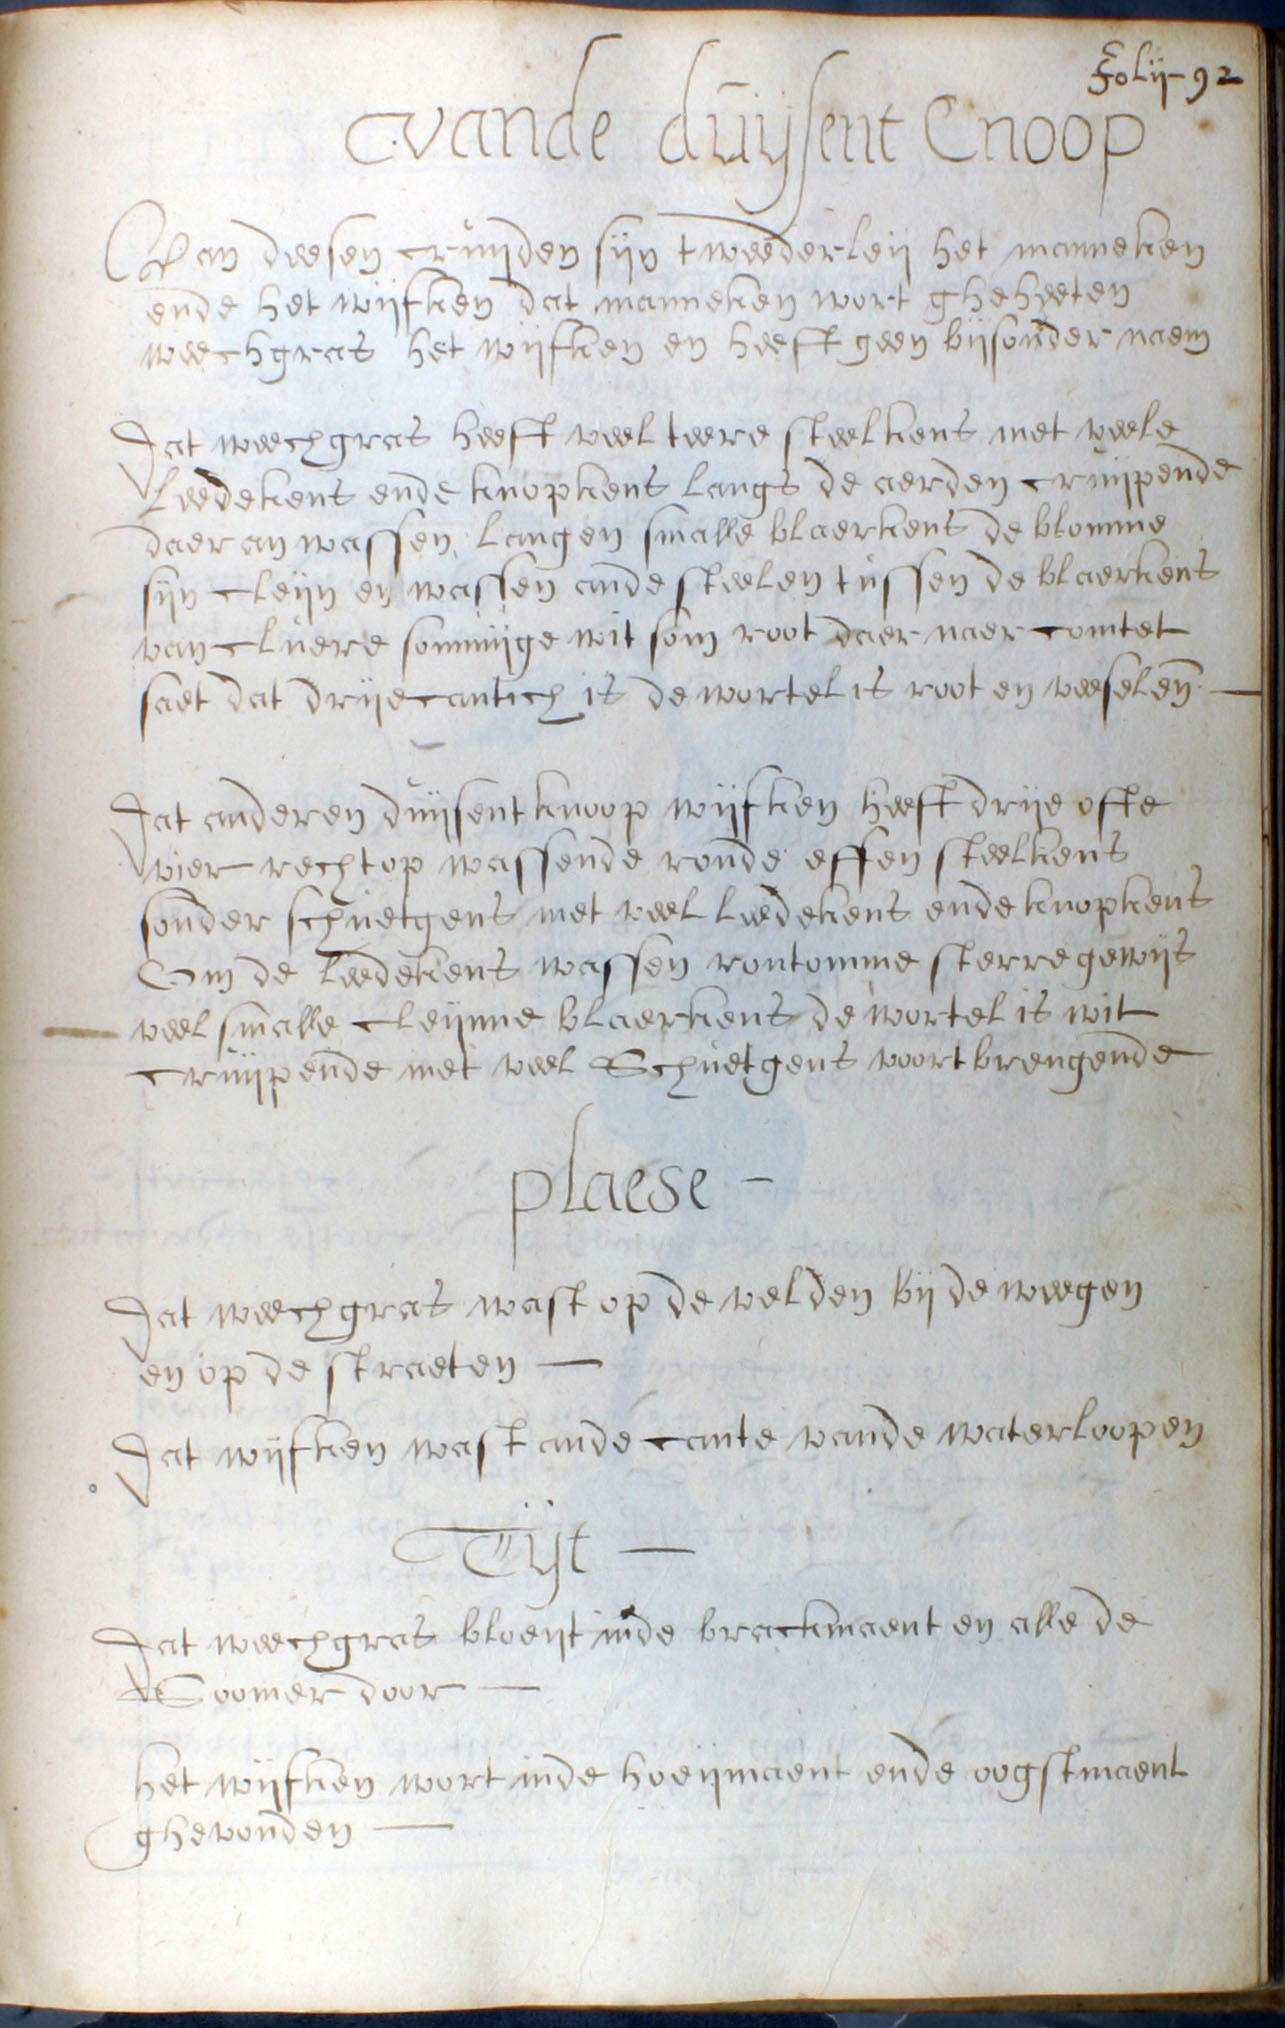 Folij 92
vande duijsent Cnoop
Van deesen cruijden sijn tweederleij het manneken
ende het wijfken dat manneken wort gheheeten
weechgras het wijfken en heeft geen bijsonder naem
Dat weechgras heeft veel teere steelkens met veele
leedekens ende knopkens langs de aerden cruijpende
daer an wassen langen smalle blaerkens de blomme
sijn cleijn en wassen ande steelen tussen de blaerkens
van cluere sommijge wit som root daer naer comtet
saet dat drijecantich is de wortel is root en veeselen
Dat anderen duijsent knoop wijfken heeft drije ofte
vier rechtop wassende ronde effen steelkens
sonder schuetgens met veel leedekens ende knopkens
Om de leedekens wassen rontomme sterre gewijs
veel smalle cleijnne blaerkens de wortel is wit
cruijpende met veel Schuetgens voortbrengende
plaese
Dat weechgras wast op de velden bij de weegen
en op de straeten
Dat wijfken wast ande cante vande waterloopen
Tijt
Dat weechgras bloeijt inde brackmaent en alle de
Soomer door
het wijfken wort inde hoeijmaent ende oogstmaent
ghevonden